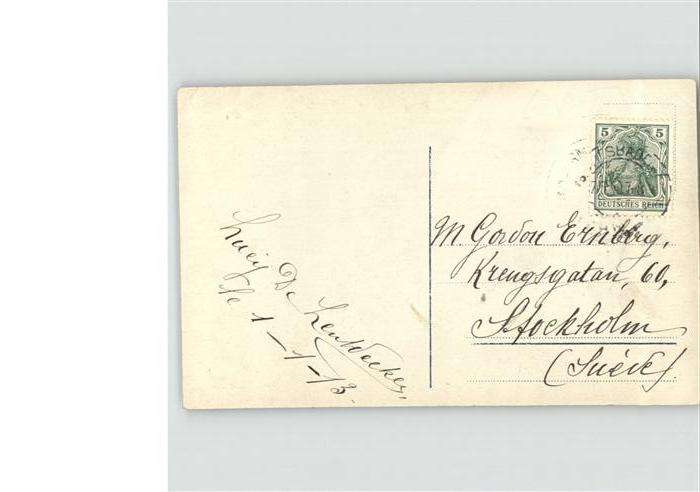 5 5
DEUTSCHES REICH
M Gordon Ernberg,
Krengsgatan, 60,
Stockholm
(Suède)
Lucy De
le 1-1-13.